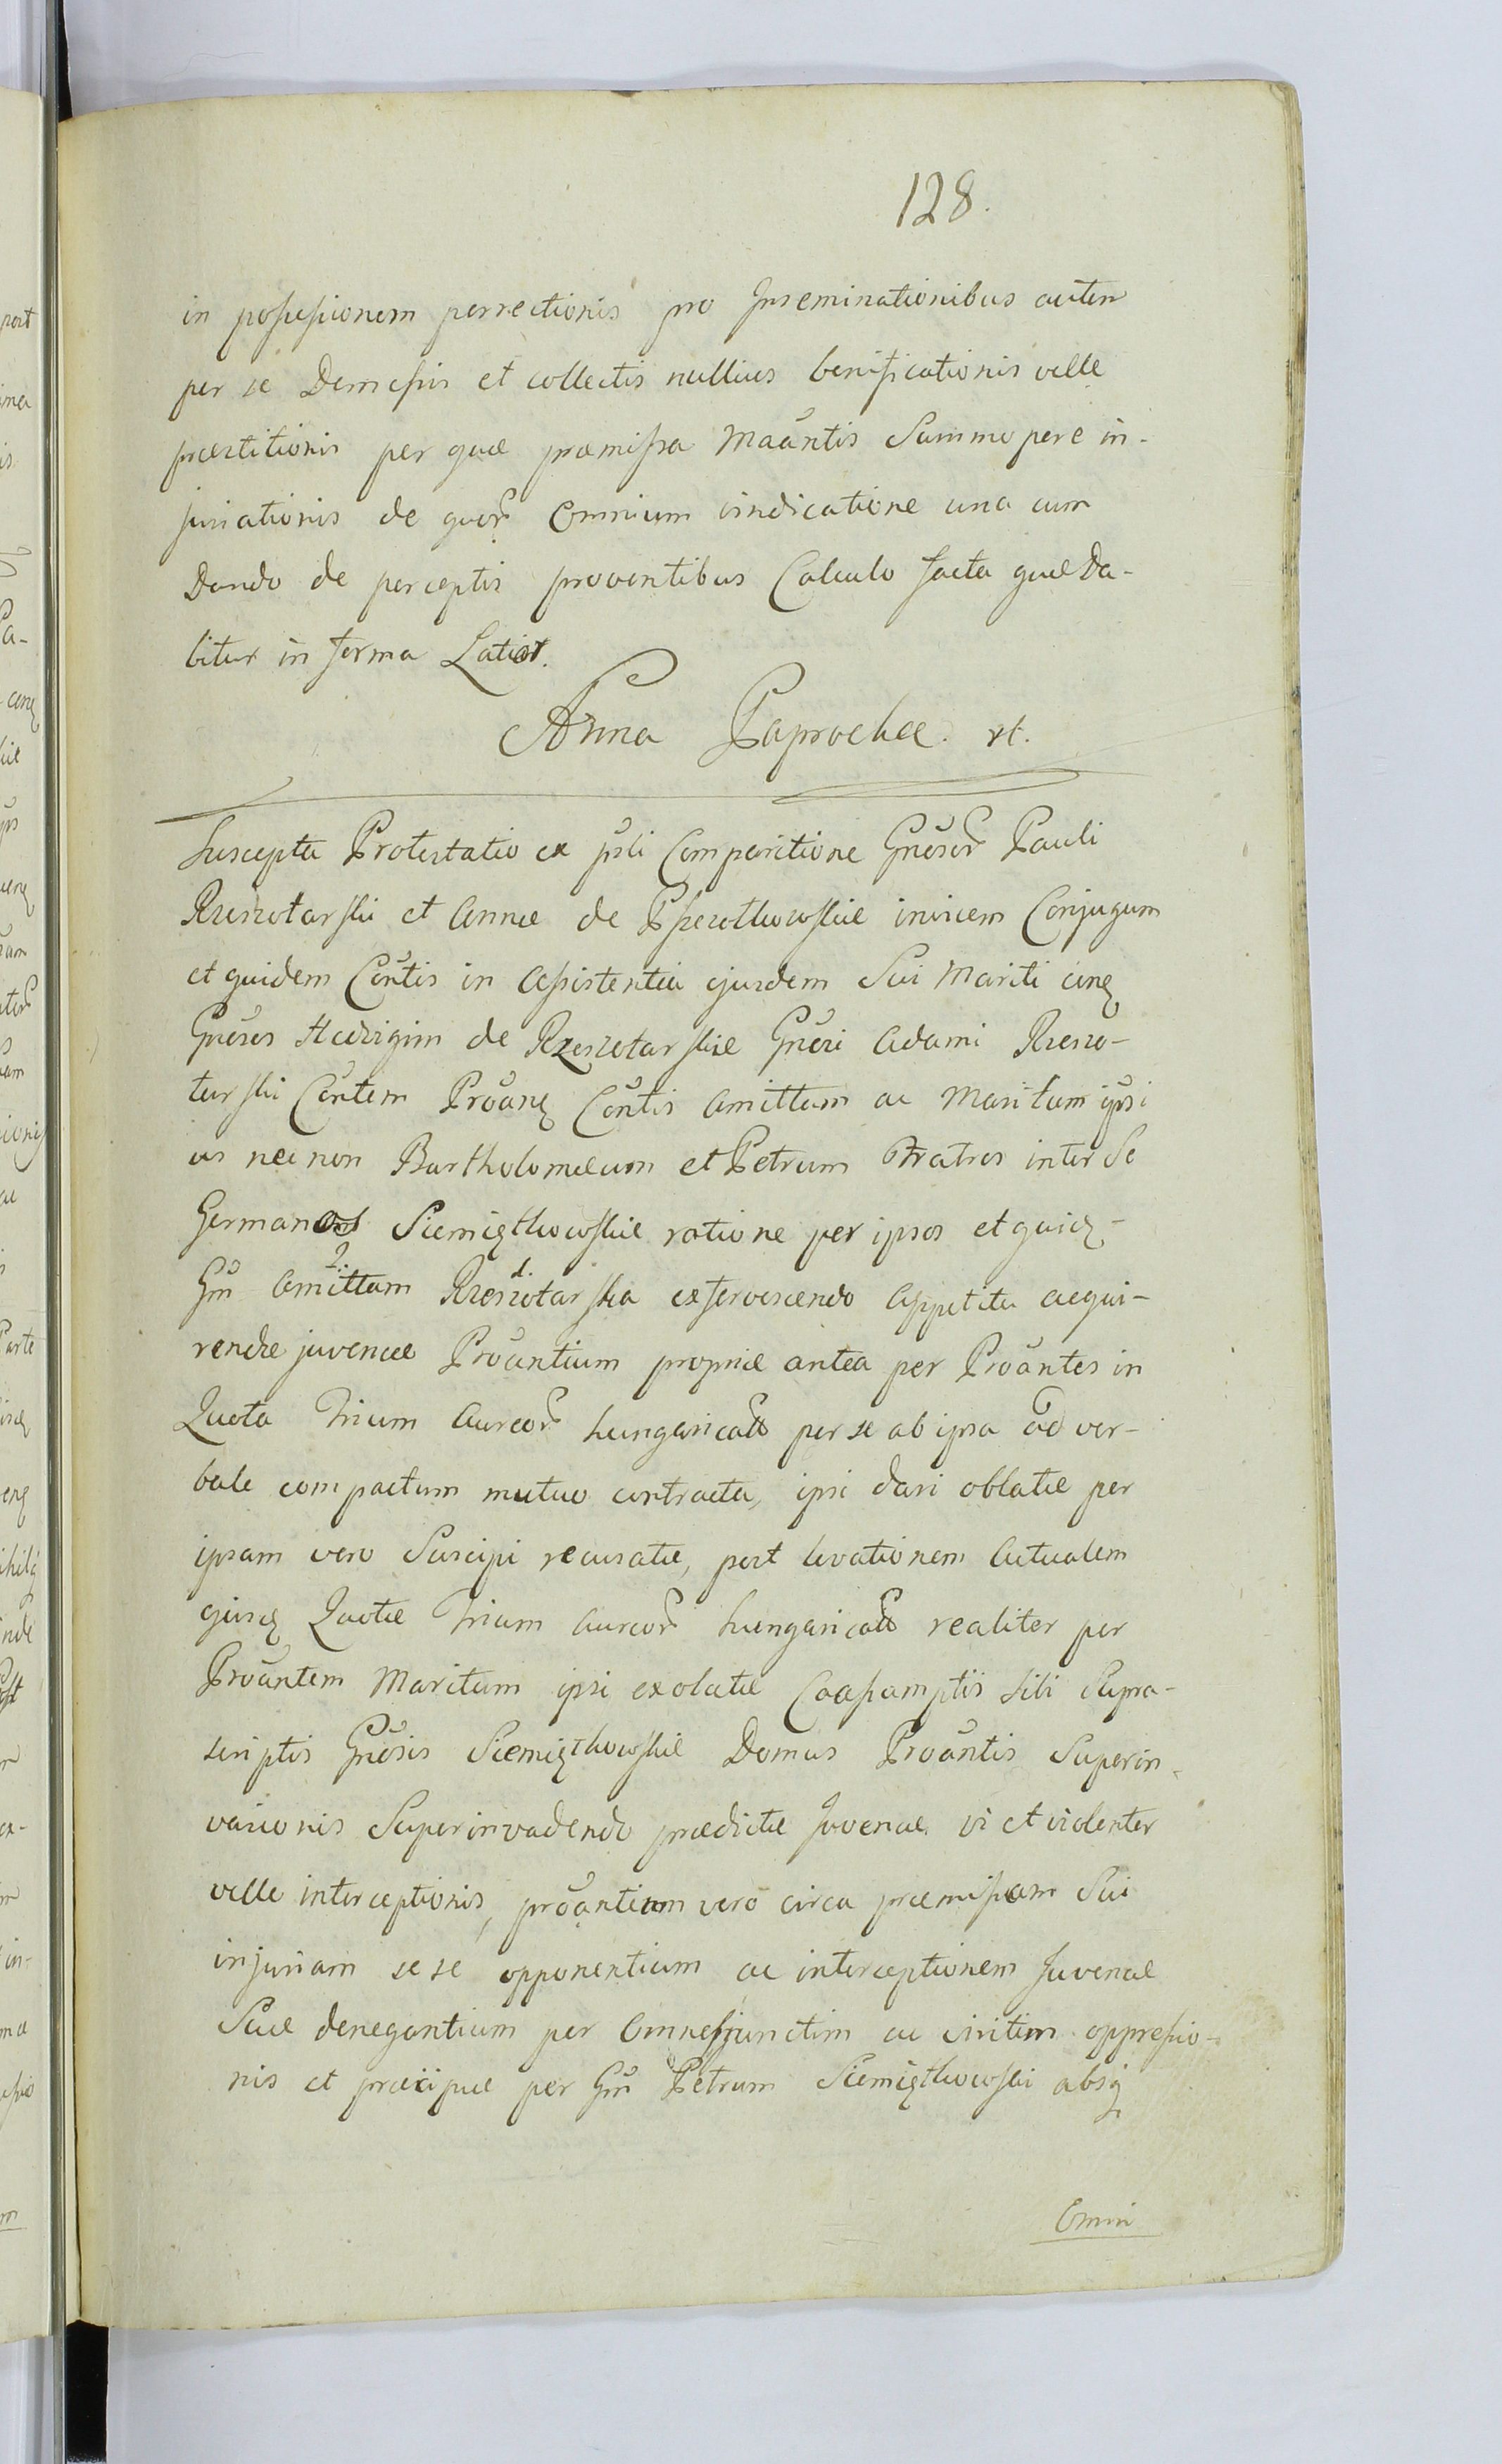 128.
in possessionem perrectionis pro Inseminationibus autem
per se Demessis et collectis nullius benificationis velle
præstitionis per quæ præmissa Maãntis Summopere in-
juriationis de quor̃ Omnium vindicatione una cum
Dando de perceptis proventibus Calculo facta quæ Da-
bitur in forma Latior.
Anna Paprocka. rt.
Suscepta Protestatio ex psli Comparitione Gnẽsor̃ Pauli
Rzeszotarski et Annæ de invicem Conjugum
et quidem Cõntis in Assistentia ejusdem Sui Mariti cirq
Gnẽsos Hedvigim de Rzeszotarskie Gnẽsi Adami Rzeszo-
tarski Cõntem Proãnq Cõntis Amittam ac Maritum ipsi
us nec non Bartholomæum et Petrum Fratres inter Se
Germanos Siemiątkowskie ratione per ipsos et quidq-
Gm̃ Amittam Rzeszotarska exfervescendo Appetitu acqui-
rendæ juvencæ Proãntium propriæ antea per Proãntes in
Quota Trium Aureor̃ hungarical̃ per se ab ipsa ad ver-
bale compactum mutuo contracta, ipsi dari oblatæ per
ipsam vero Suscipi recusatæ, post levationem Actualem
ejusq Quotæ Trium Aureor̃ hungarical̃ realiter per
Proãntem Maritum ipsi exolutæ Coassumptis sibi Supra-
scriptis Gnẽsis Siemiątkowskie Domus Proãntis Superin-
vasionis Superinvadendo prædictæ Juvencæ vi et violenter
velle interceptionis, proãntium vero circa præmissam Sui
injuriam sese opponentium ac interceptionem Juvencæ
Suæ denegantium per Omnes junctim ac viritim oppressio-
nis et præcipue per Gm̃ Petrum Siemiątkowski absq
Omni